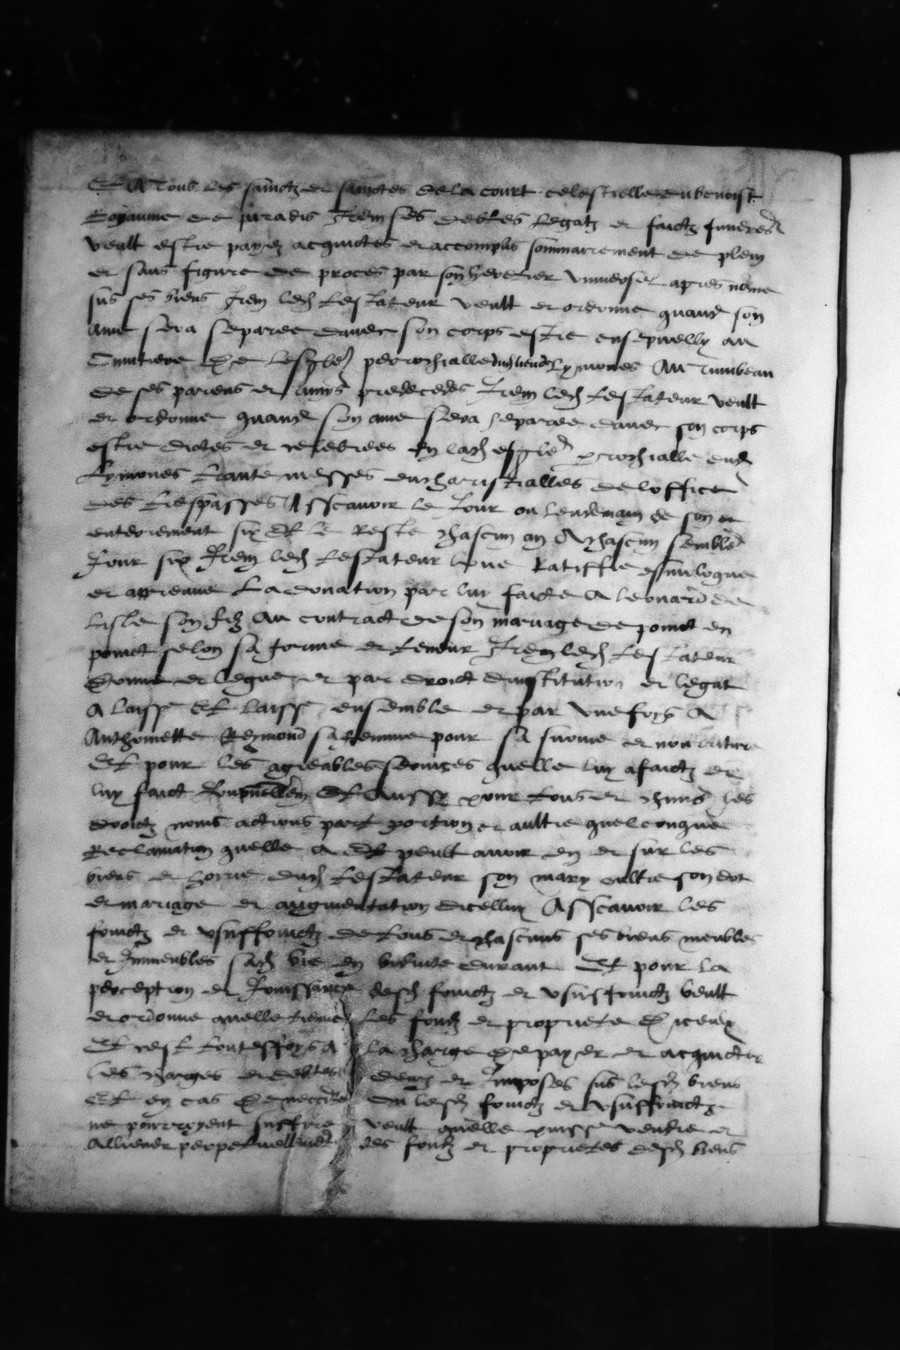 Et a tous les sainctz et sainctes de la court celestielle du benoist
Royaume de paradis Item ses debtes legatz et faictz funeres
veult estre payez acquictes et accomplis sommairement de plein
et sans figure de proces par son heretier universel apres nomme
sus ses biens Item led testateur veult et ordonne quand son
ame sera separee davec son corps estre ensepvelly au
Cimitiere de lesglez perrochialle dud lieu de Lymones Au Tumbeau
de ses parens et amys predecedes Item led testateur veult
et ordonne quand son ame sera separee davec son corps
estre dictes et celebrees en lad esgle perrochialle dud
Lymones trante messes eucharistialles de loffice
des trespasses Asscavoir le Jour ou lendemain de son
enterrement six Et le reste chascun an A chascun semble
Jour six Item led testateur loue Ratiffie esmologue
et appreuve La donation par luy faicte A Leonard de
Lisle son filz Au contract de son mariage de poinct en
poinct selon sa forme et teneur Item led testateur
donne et legue et par droict dinstitution et legat
A laisse Et laisse ensemble et par une foys A
Anthoinette Reymond sa femme pour sa et nourriture
Et pour les agreables services quelle luy a faictz et
luy faict Et aussy pour tous et chuns les
droictz noms actions part portion et aultre quelconque
Reclamation quelle a Et peult avoir en et sur les
biens et hoirie dud testateur son mary oultre son dot
et mariage et augmentation dicelluy Asscavoir les
fruictz et usuffruictz de tous et chascuns ses biens meubles
et Immeubles sad vie en durant Et pour la
perception et Jouissance desd fruictz et usufruictz veult
et ordonne quelle tienne les fondz et propriete diceulx
Et cest touteffoys A la charge de payer et acquicter
les charges et debtes deuz et Imposes sus lesd biens
Et en cas de neccite Ou lesd fruictz et usuffruictz
ne pourroyent suffire veult quelle puisse vendre et
Alliener perpetuellement des fondz et proprietes desd biens